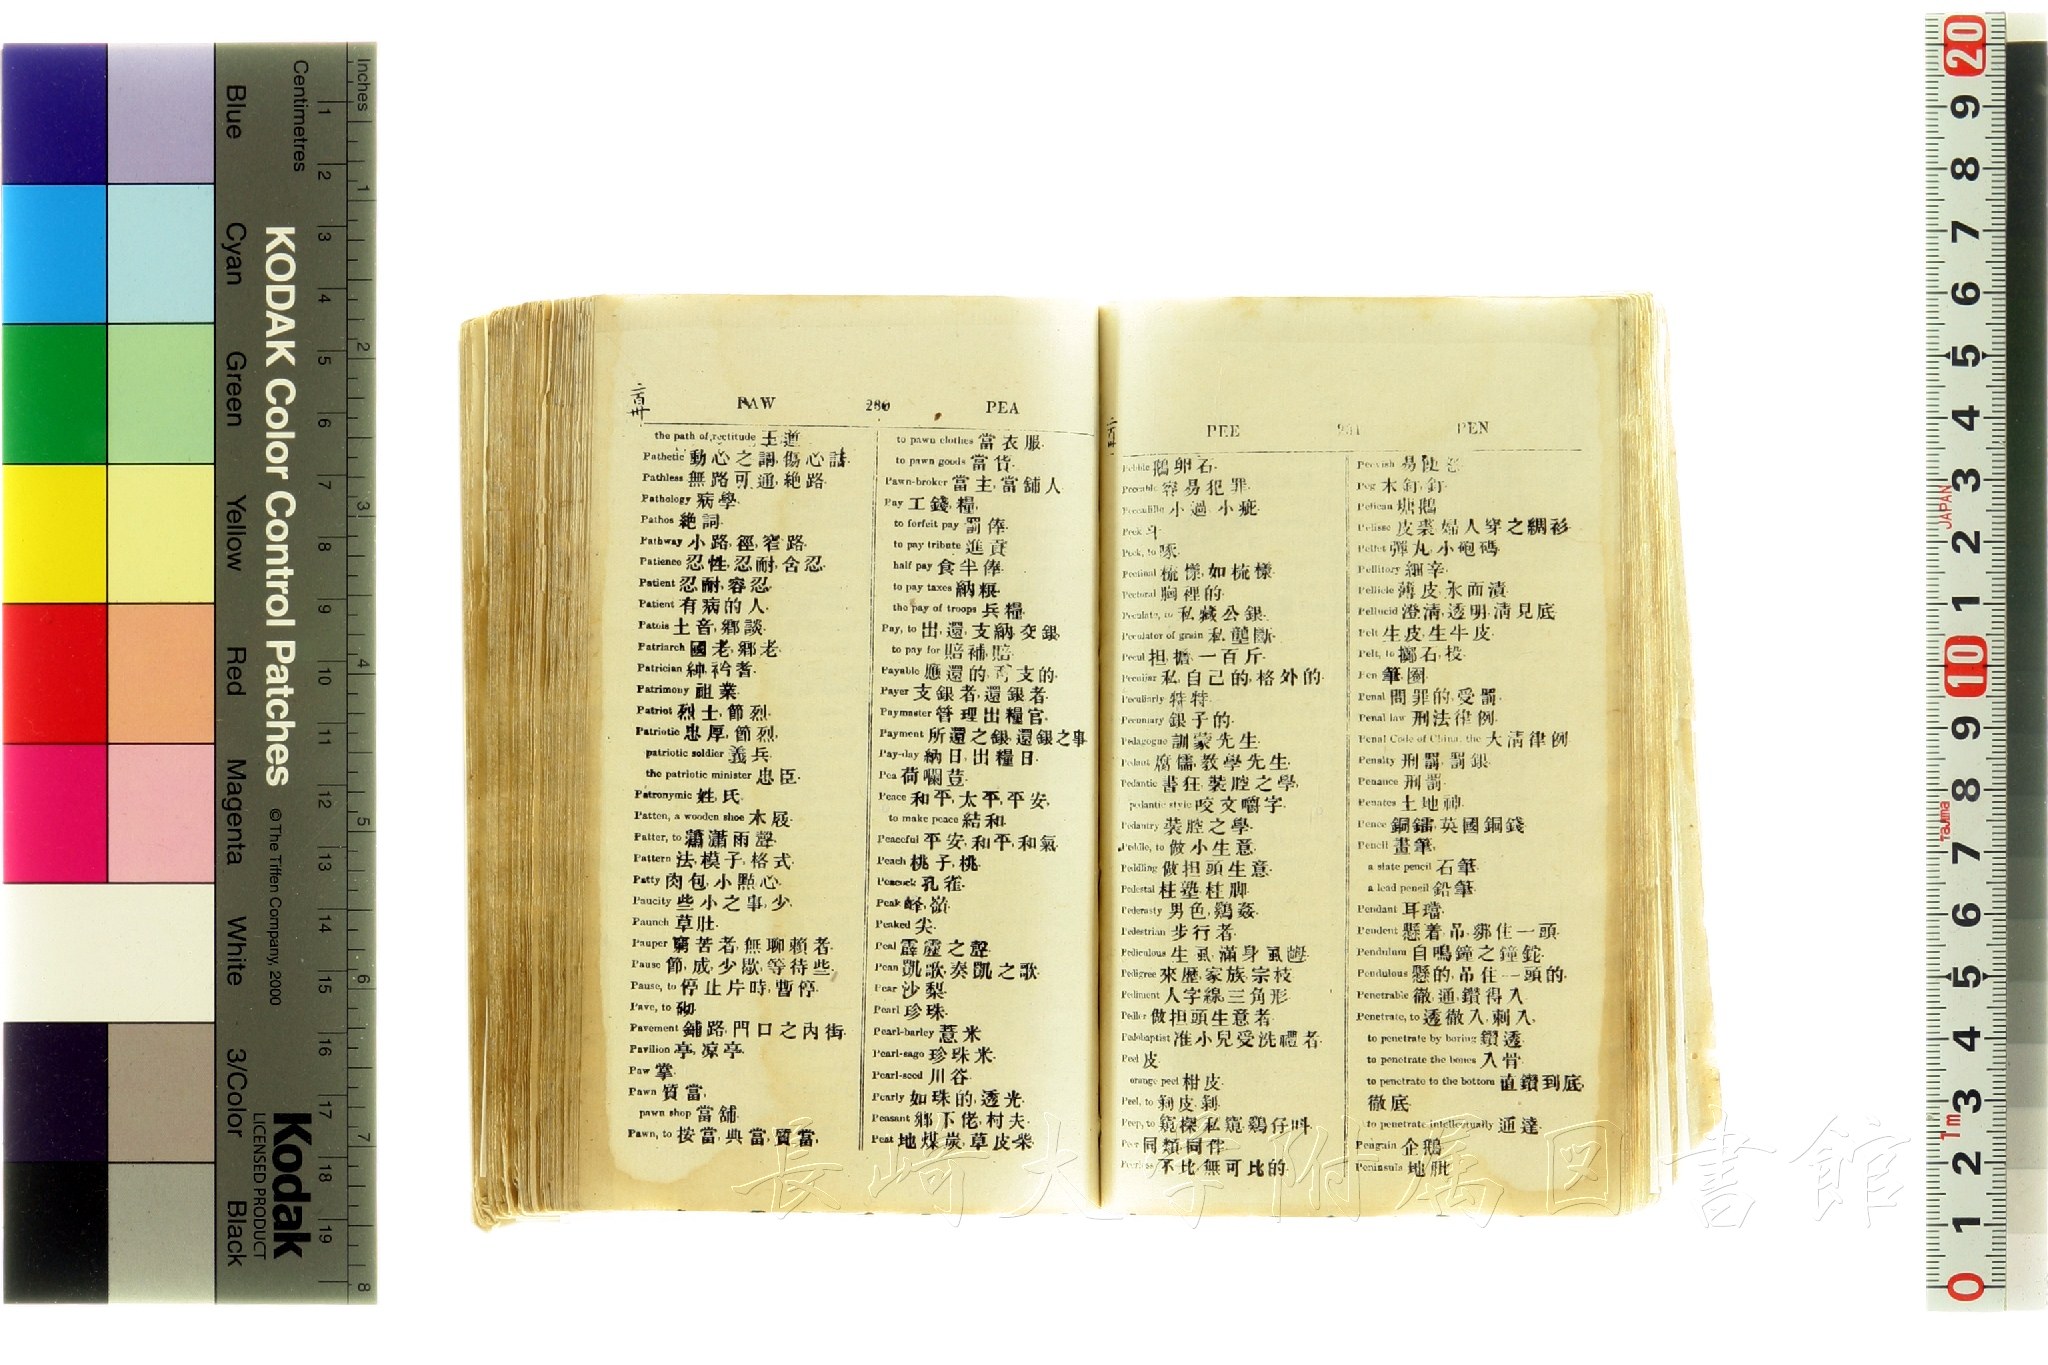 Inches
Centimetres
KODAK Color Control Patches
© The Tiffen Company, 2000
Kodak
LICENSED PRODUCT
Blue
Cyan
Green
Yellow
Red
Magenta
White
3/Color
Black
PAW 280 PEA
the path of rectitude 王道
Pathetic 動心之調,傷心話
Pathless 無路可通,絶路
Pathology 病學
Pathos 絶詞
Pathway 小路,徑,窄路
Patience 忍性,忍耐,舍忍
Patient 忍耐,容忍
Patient 有病的人
Patois 土音,鄉談
Patriarch 國老,鄉老
Patrician 紳衿耆
Patrimony 祖業
Patriot 烈士,節烈
Patriotic 忠厚,節烈
patriotic soldier 義兵
the patriotic minister 忠臣
Patronymic 姓,氏
Patten, a wooden shoe 木屐
Patter, to 瀟瀟雨聲
Pattern 法,模子,格式
Patty 肉包,小點心
Paucity 些小之事,少
Paunch 草肚
Pauper 窮苦者,無聊賴者
Pause 節,成,少歇,等待些
Pause, to 停止片時,暫停
Pave, to 砌
Pavement 鋪路,門口之內街
Pavilion 亭,凉亭
Paw 掌
Pawn 質當
pawn shop 當舖
Pawn, to 按當,典當,質當
to pawn clothes 當衣服
to pawn goods 當貨
Pawn-broker 當主,當舖人
Pay 工錢,糧
to forfeit pay 罰俸
to pay tribute 進貢
half pay 食半俸
to pay taxes 納糧
the pay of troops 兵糧
Pay, to 出,還,支納,交銀
to pay for 賠補,賠
Payable 應還的,支的
Payer 支銀者,還銀者
Paymaster 管理出糧官
Payment 所還之銀,還銀之事
Pay-day 納日,出糧日
Pea 荷囒荳
Peace 和平,太平,平安
to make peace 結和
Peaceful 平安,和平,和氣
Peach 桃子,桃
Peacock 孔雀
Peak 峰,嶺
Peaked 尖
Peal 霹靂之聲
Pean 凱歌,奏凱之歌
Pear 沙梨
Pearl 珍珠
Pearl-barley 薏米
Pearl-sago 珍珠米
Pearl-seed 川谷
Pearly 如珠的,透光
Peasant 鄉下佬,村夫
Peat 地煤炭,草皮柴
PEE PEN
Pebble 鵝卵石
Peccable 容易犯罪
Peccadillo 小過,小疵
Peck 斗
Peck, to 啄
Pectinal 梳樣,如梳樣
Pectoral 胸裡的
Peculate, to 私藏公銀
Peculator of grain 私壟斷
Pecul 担,擔,一百斤
Peculiar 私,自己的,格外的
Peculiarly 特特
Pecuniary 銀子的
Pedagogue 訓蒙先生
Pedant 腐儒,教學先生
Pedantic 書狂,裝腔之學
pedantic style 咬文嚼字
Pedantry 裝腔之學
Peddle, to 做小生意
Peddling 做担頭生意
Pedestal 柱墪,柱脚
Pederasty 男色,鷄姦
Pedestrian 步行者
Pediculous 生虱,滿身虱乸
Pedigree 來歷,家族宗枝
Pediment 人字線,三角形
Pedler 做担頭生意者
Pedobaptist 准小兒受洗禮者
Peel 皮
orange peel 柑皮
Peel, to 剝皮,剝
Peep, to 窺探,私窺,鷄仔叫
Peer 同類,同伴
Peerless 不比,無可比的
Peevish 易使
Peg 木釘,釘
Pelican 塘鵝
Pelisse 皮裘,婦人穿之綢衫
Pellet 彈丸,小砲碼
Pellitory 細辛
Pellicle 薄皮,氷而漬
Pellucid 澄清,透明,清見底
Pelt 生皮,生牛皮
Pelt, to 擲石,投
Pen 筆,圈
Penal 問罪的,受罰
Penal law 刑法律例
Penal Code of China, the 大清律例
Penalty 刑罰,罰銀
Penance 刑罰
Penates 土地神
Pence 銅鐳,英國銅錢
Pencil 畫筆
a slate pencil 石筆
a lead pencil 鉛筆
Pendant 耳璫
Pendent 懸着,吊,綁住一頭
Pendulum 自鳴鐘之鐘鉈
Pendulous 懸的,吊住一頭的
Penetrable 徹,通,鑽得入
Penetrate, to 透徹入,刺入
to penetrate by boring 鑽透
to penetrate the bones 入骨
to penetrate to the bottom 直鑽到底,
徹底
to penetrate intellectually 通達
Penguin 企鵝
Peninsula 地肶
長崎大学附属図書館
JAPAN
Tajima
1m